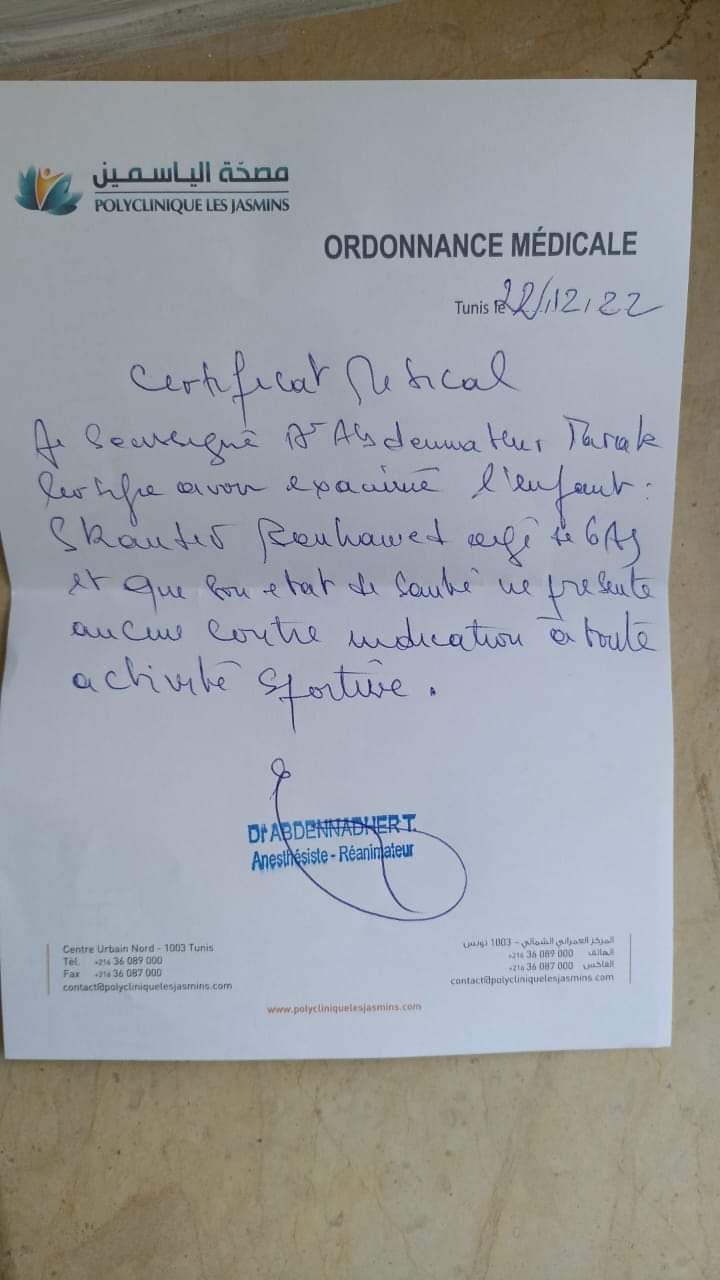 مصحّة الياسمين
POLYCLINIQUE LES JASMINS
ORDONNANCE MÉDICALE
Tunis le 22/12/22
Certificat Medical
Je Soussigné Dr Abdennadher Tarak
certifie avoir examiné l'enfant :
Skander agé de 6 As
et que son etat de santé ne presente
aucune contre indication à toute
activité sportive.
Dr ABDENNADHER T.
Anesthésiste - Réanimateur
Centre Urbain Nord - 1003 Tunis
Tél. +216 36 089 000
Fax +216 36 087 000
contact@polycliniquelesjasmins.com
المركز العمراني الشمالي - 1003 تونس
الهاتف 000 089 36 216+
الفاكس 000 087 36 216+
contact@polycliniquelesjasmins.com
www.polycliniquelesjasmins.com